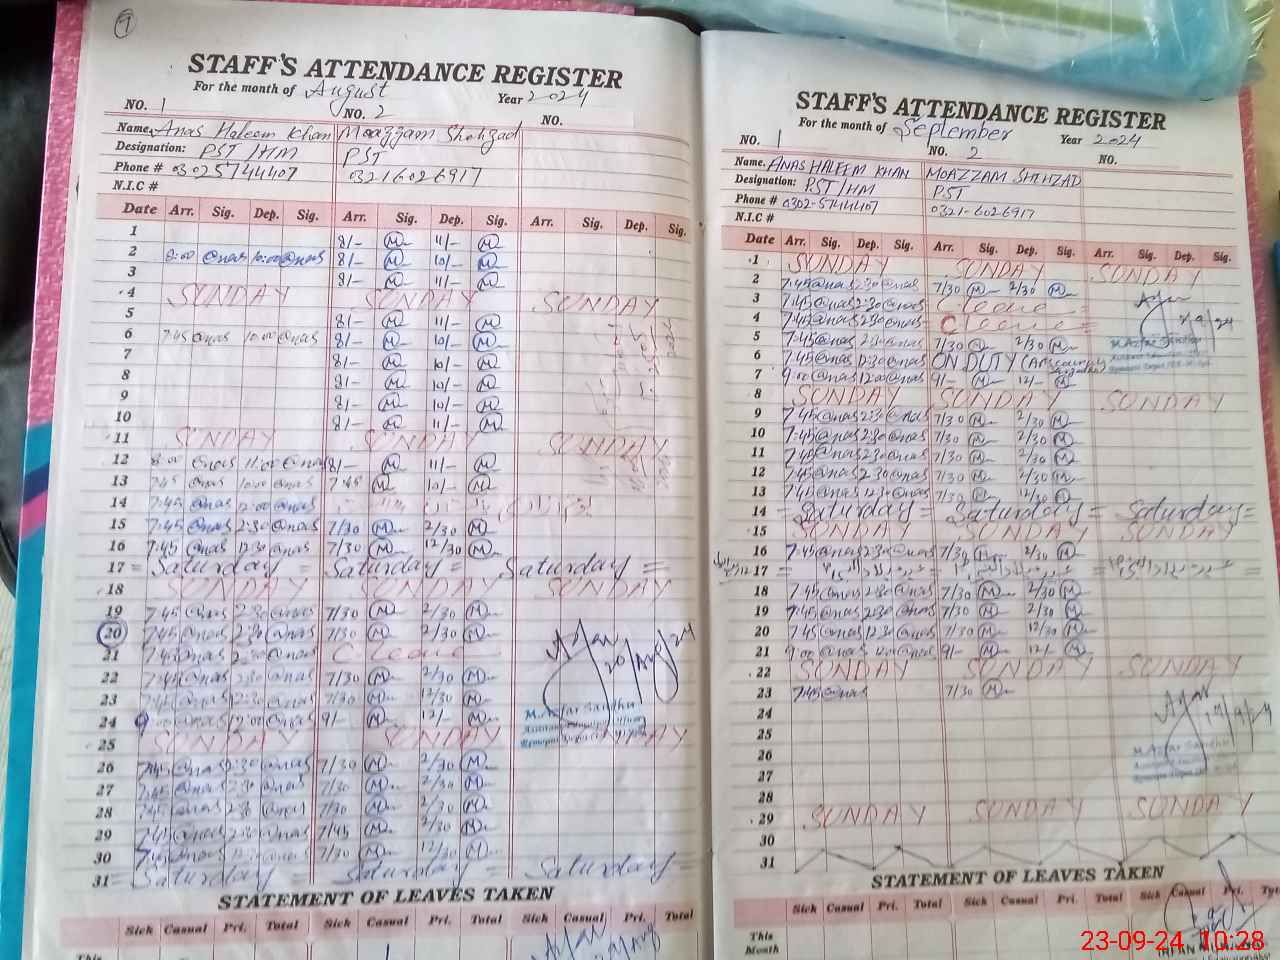 7
STAFF'S ATTENDANCE REGISTER
For the month of August Year 2024
NO. 1 NO. 2 NO.
Name. Anas Haleem Khan Moazzam Shehzad
Designation: PST/HM PST
Phone # 03025744407 03216026917
N.I.C #
Date Arr. Sig. Dep. Sig. Arr. Sig. Dep. Sig. Arr. Sig. Dep. Sig.
1 8/- M 11/- M
2 8:00 @nas 10:00 @nas 8/- M 10/- M
3 8/- M 11/- M
4 SUNDAY SUNDAY SUNDAY
5 8/- M 11/- M
6 7:45 @nas 10:00 @nas 8/- M 10/- M
7 8/- M 11/- M
8 8/- M 10/- M
9 8/- M 10/- M
10 8/- M 11/- M
11 SUNDAY SUNDAY SUNDAY
12 8:00 @nas 11:00 @nas 8/- M 11/- M
13 7:45 @nas 10:00 @nas 7:45 M 10/- M
14 7:45 @nas 12:00 @nas
15 7:45 @nas 2:30 @nas 7/30 M 2/30 M
16 7:45 @nas 12:30 @nas 7/30 M 12/30 M
17 = Saturday = Saturday = Saturday =
18 SUNDAY SUNDAY SUNDAY
19 7:45 @nas 2:30 @nas 7/30 M 2/30 M
20 7:45 @nas 2:30 @nas 7/30 M 2/30 M
21 7:45 @nas 2:30 @nas C leave
22 7:45 @nas 2:30 @nas 7/30 M 2/30 M
23 7:45 @nas 12:30 @nas 7/30 M 12/30 M
24 9:00 @nas 12:00 @nas 9/- M 12/- M
25 SUNDAY SUNDAY SUNDAY
26 7:45 @nas 2:30 @nas 7/30 M 2/30 M
27 7:45 @nas 2:30 @nas 7/30 M 2/30 M
28 7:45 @nas 2:30 @nas 7/30 M 2/30 M
29 7:45 @nas 2:30 @nas 7/45 M 2/30 M
30 7:45 @nas 12:30 @nas 7/30 M 12/30 M
31 = Saturday = Saturday = Saturday =
20/Aug/24
M. Azfar Sandhu
STATEMENT OF LEAVES TAKEN
Sick Casual Pri. Total Sick Casual Pri. Total Sick Casual Pri. Total
This
STAFF'S ATTENDANCE REGISTER
For the month of September Year 2024
NO. 1 NO. 2 NO.
Name. ANAS HALEEM KHAN MOAZZAM SHEHZAD
Designation: PST/HM PST
Phone # 0302-5744407 0321-6026917
N.I.C #
Date Arr. Sig. Dep. Sig. Arr. Sig. Dep. Sig. Arr. Sig. Dep. Sig.
1 SUNDAY SUNDAY SUNDAY
2 7:45 @nas 2:30 @nas 7/30 M 2/30 M
3 7:45 @nas 2:30 @nas C leave
4 7:45 @nas 2:30 @nas C leave
5 7:45 @nas 2:30 @nas 7/30 M 2/30 M
6 7:45 @nas 12:30 @nas ON DUTY
7 9:00 @nas 12:00 @nas 9/- M 12/- M
8 SUNDAY SUNDAY SUNDAY
9 7:45 @nas 2:30 @nas 7/30 M 2/30 M
10 7:45 @nas 2:30 @nas 7/30 M 2/30 M
11 7:45 @nas 2:30 @nas 7/30 M 2/30 M
12 7:45 @nas 2:30 @nas 7/30 M 2/30 M
13 7:45 @nas 12:30 @nas 7/30 M 12/30 M
14 = Saturday = Saturday = Saturday =
15 SUNDAY SUNDAY SUNDAY
16 7:45 @nas 2:30 @nas 7/30 M 2/30 M
17
18 7:45 @nas 2:30 @nas 7/30 M 2/30 M
19 7:45 @nas 2:30 @nas 7/30 M 2/30 M
20 7:45 @nas 12:30 @nas 7/30 M 12/30 M
21 9:00 @nas 12:00 @nas 9/- M 12/- M
22 SUNDAY SUNDAY SUNDAY
23 7:45 @nas 7/30 M
24
25
26
27
28
29 SUNDAY SUNDAY SUNDAY
30
31
M. Azfar Sandhu
STATEMENT OF LEAVES TAKEN
Sick Casual Pri. Total Sick Casual Pri. Total Sick Casual Pri.
This
Month
23-09-24 10:28